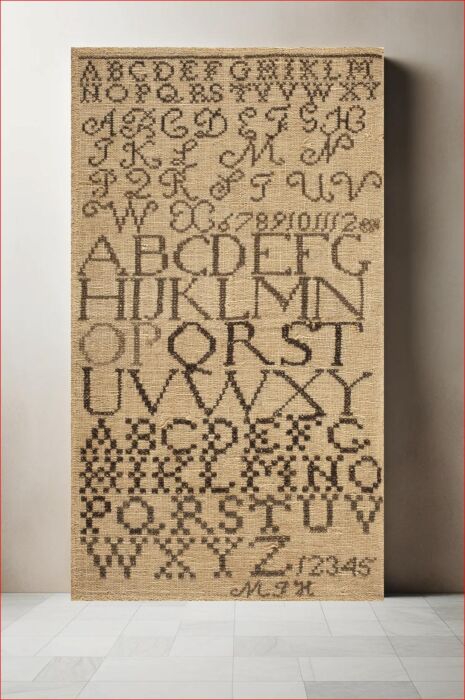 ABCDEFGHIKLM
NOPQRSTVVWXY
ABCDEFGH
IKLMN
PQRSTUV
WX6789101112
ABCDEFG
HIJKLMN
OPQRST
UVWXY
ABCDEFG
HIKLMNO
PQRSTUV
WXYZ12345
MJH